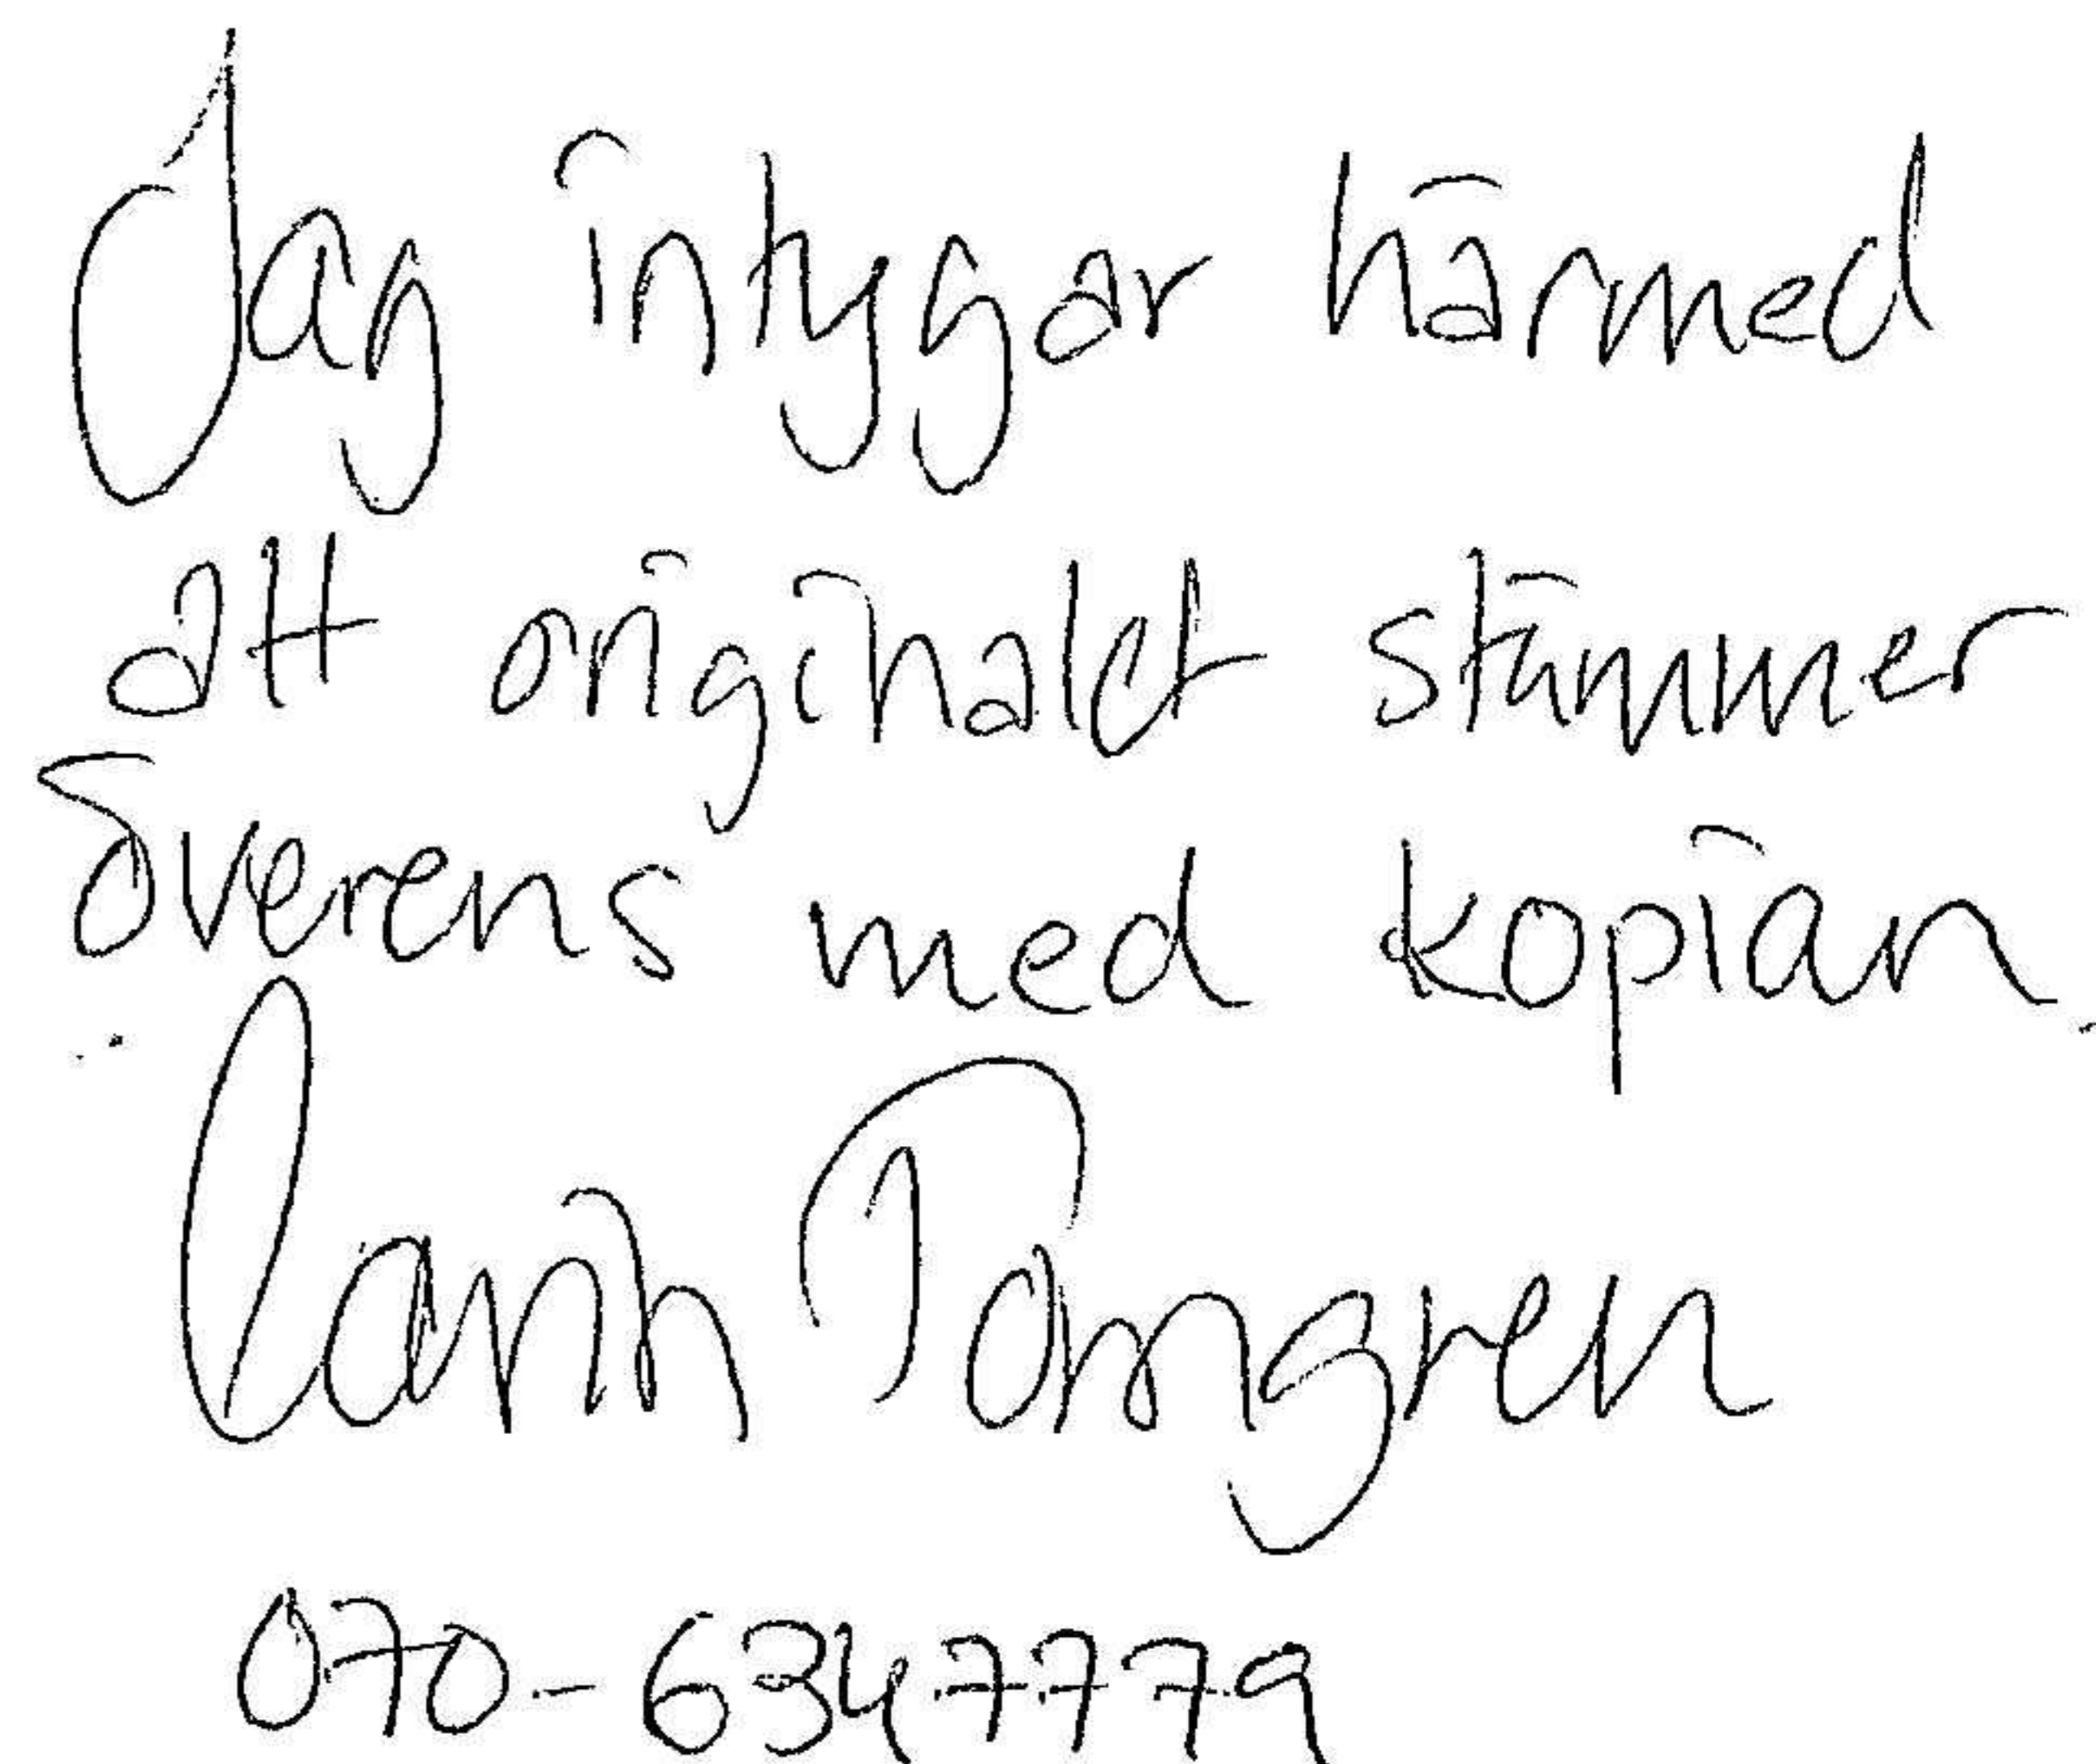 Jag intygar härmed
att originalet stämmer
överens med kopian.
Carin Torngren
070-6347779